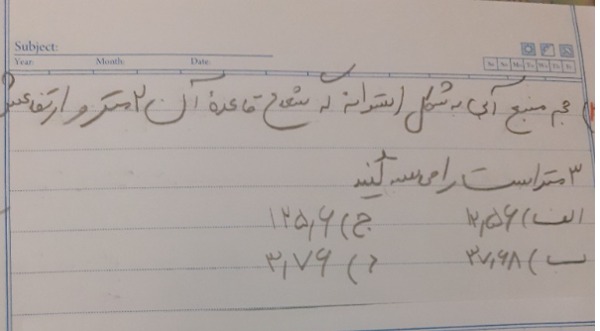 Subject:
Year: Month: Date:
حجم منبع آبی به شکل استوانه که شعاع قاعدهٔ آن ۲ متر و ارتفاعش
۳ متر است را حساب کنید
الف) ۱۲٫۵۶ ج) ۱۲۵٫۶
ب) ۳۷٫۶۸ د) ۳٫۷۶